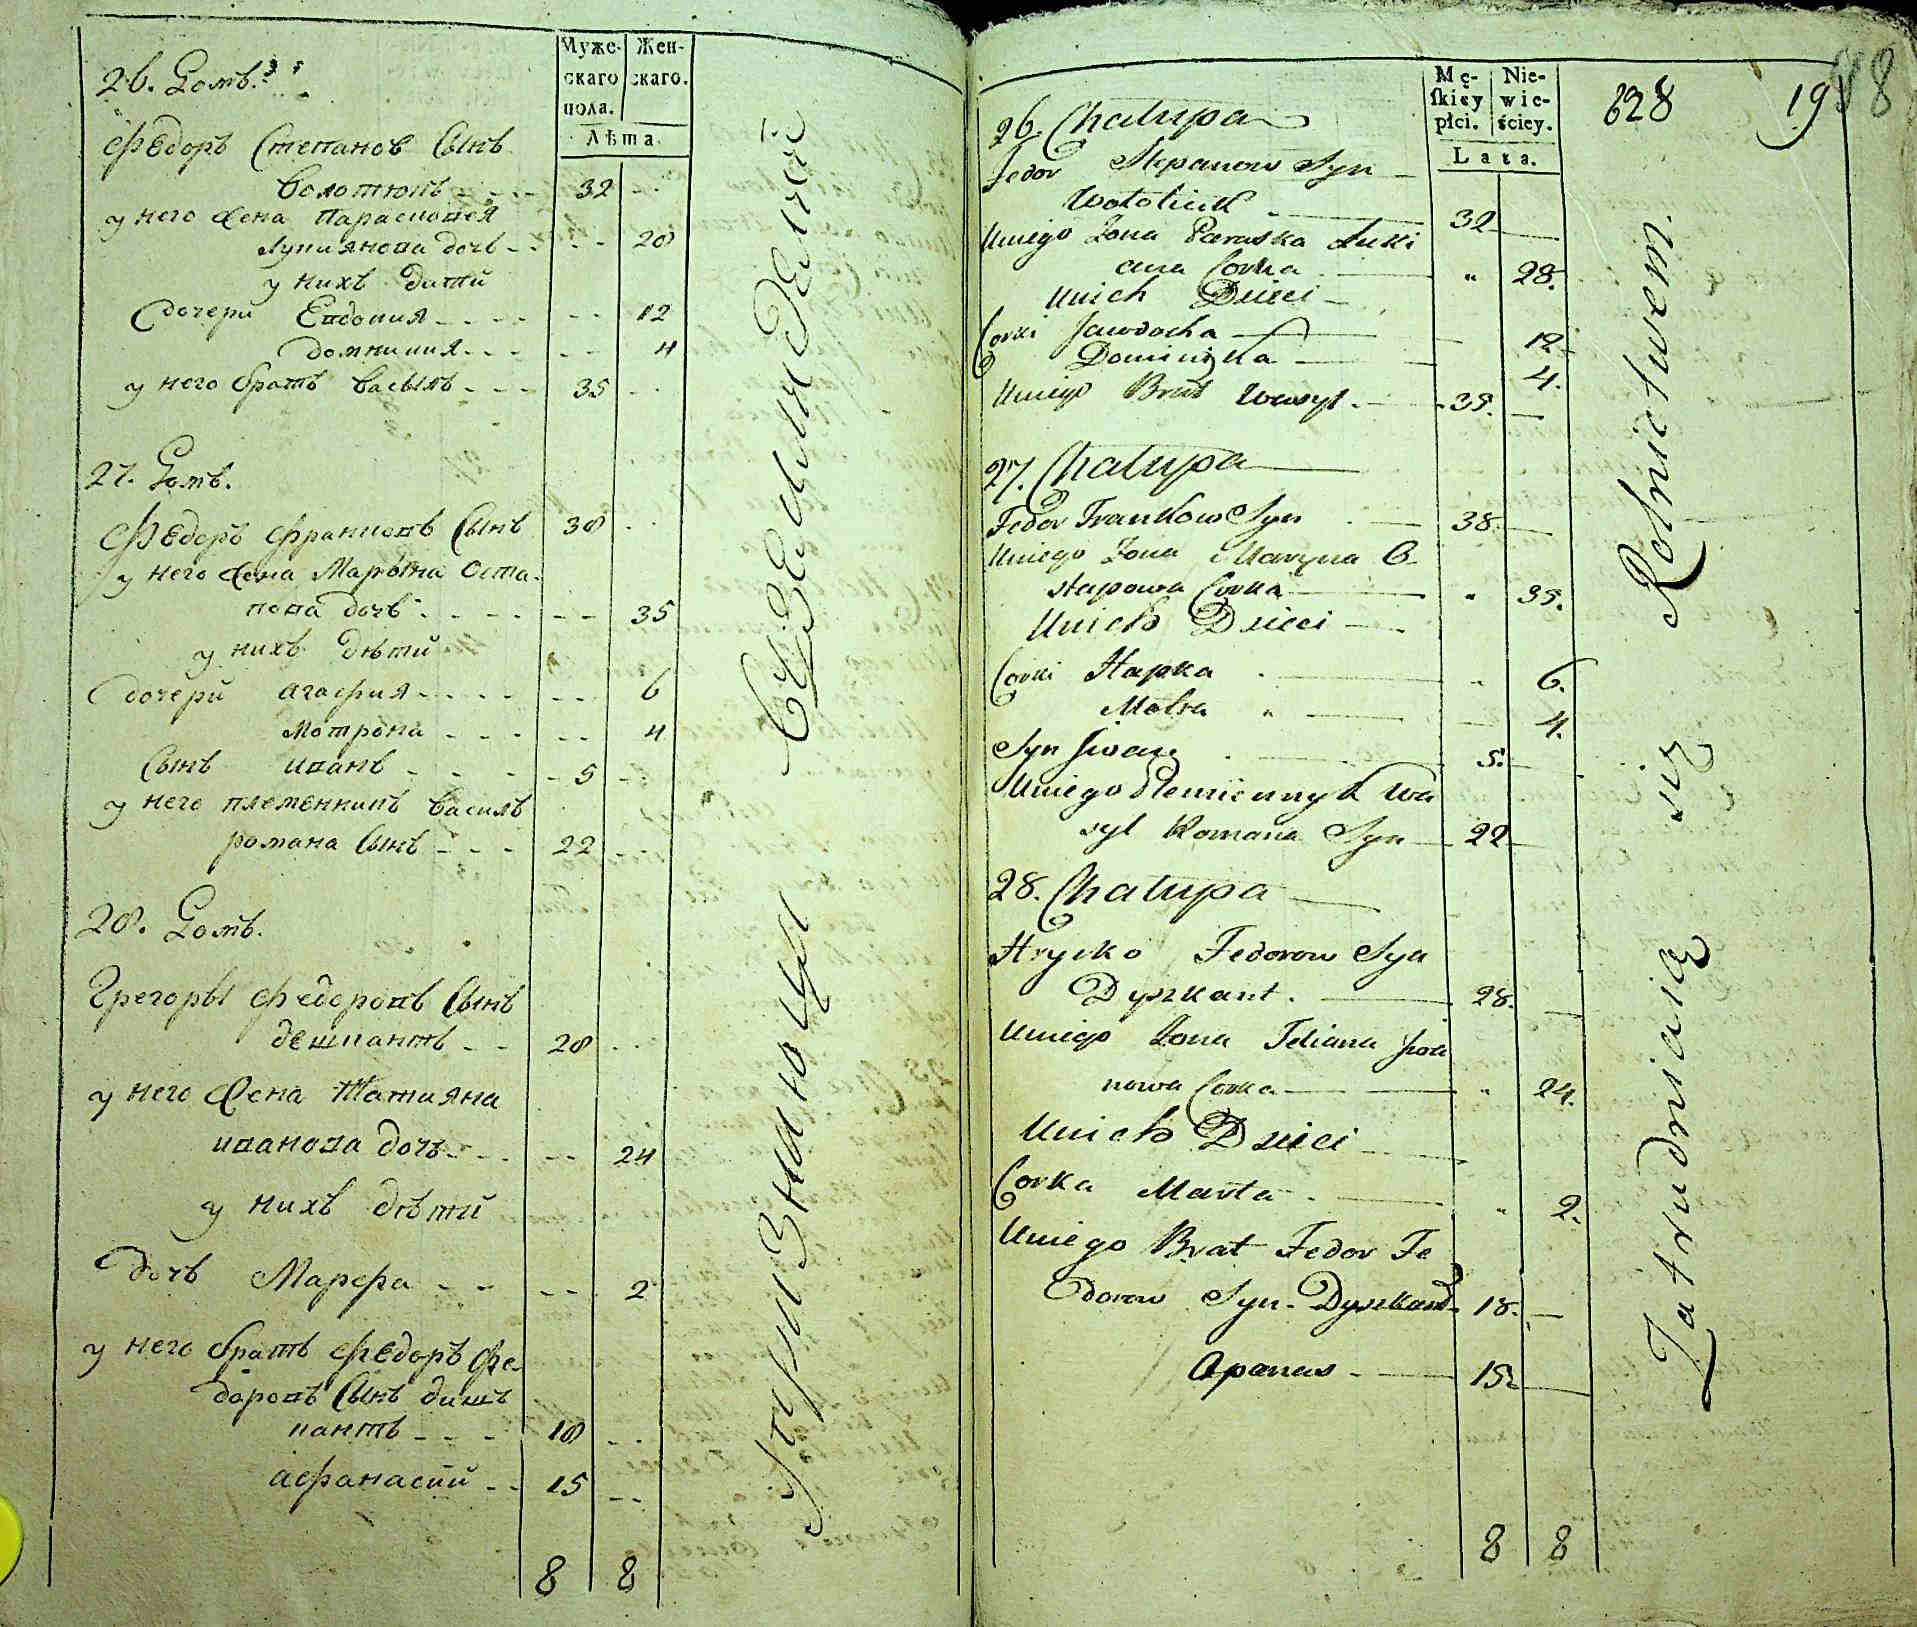 Муже-
скаго
пола.
Жен-
скаго.
Лѣта.
26. Домъ.
Федоръ Степановъ Сынъ
Волотюкъ - - - 32 - -
у него Жена Парасковея
Лукиянова дочь - - - 28
у нихъ дити
дочери Евдокия - - - - - - 12
Домникия - - - - - 4
у него братъ Васыль - - - 35 - -
27. Домъ.
Федоръ Франковъ Сынъ 38 - -
у него Жена Марына Оста-
пова дочь - - - - - - 35
у нихъ дѣти
дочери Агафия - - - - - - 6
Мотрона - - - - - 4
Сынъ Иванъ - - - - 5 -
у него племенникъ Василь
романа Сынъ - - - 22 - -
28. Домъ.
Грегоры Федоровъ Сынъ
дешкантъ - - 28 - -
у него Жена Татияна
иванова дочь - - - - - 24
у нихъ дѣти
дочь Марфа - - - - - 2
у него братъ Федоръ Фе-
доровъ Сынъ дишъ
кантъ - - - 18 - -
Афанасий - - 15 - -
8 8
Mę-
skiey
płci.
Nie-
wie-
ściey.
Lata.
628 19
88
26. Chałupa
Fedor Stepanow Syn
Wołotiuk - 32 -
Uniego Żona Paraska Łuki
ana Corka - " 28.
Unich Dzieci -
Corki Jawdocha - 12
Dominika - 4.
Uniego Brat Wasyl - 35. -
27. Chałupa
Fedor Frankow Syn - 38. -
Uniego Żona Maryna O
stapowa Corka - " 35.
Unich Dzieci -
Corki Hapka - " 6.
Motra " - 4.
Syn Jwan - 5. -
Uniego Plemiennyk Wa
syl Romana Syn - 22 -
28. Chałupa
Hryćko Fedorow Syn
Dyszkant. - 28. -
Uniego Żona Teliana Jwa
nowa Corka - " 24.
Unich Dzieci -
Corka Marta - " 2.
Uniego Brat Fedor Fe
dorow Syn - Dyszkant - 18. -
Apanas - 15. -
8 8
Zatrudniaią się Rolnictwem.